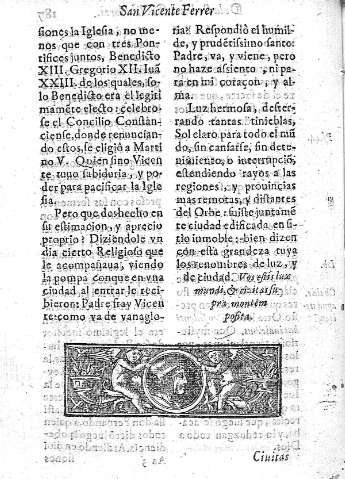 San Vicente Ferrer
siones la Iglesia, no me-
nos que con tres Pon-
tifices juntos, Benedicto
XIII. Gregorio XII. Iuã
XXIII. de los quales, so-
lo Benedicto era el legiti
mamẽte electo: celebro-
se el Concilio Constan-
ciense, donde renuncian-
do estos, se eligiò a Marti
no V. Quien sino Vicen
te tuuo sabiduria, y po-
der para pacificar la Igle
sia.
Pero que deshecho en
su estimacion, y aprecio
proprio? Diziendole vn
dia cierto Religioso que
le acompañaua, viendo
la pompa conque en vna
ciudad al entrar le reci-
bieron: Padre fray Vicen
te: como va de vanaglo-
ria? Respondiò el humil-
de, y prudẽtissimo santo:
Padre, va, y viene, pero
no haze assiento, ni pa-
ra en mi coraçon, y al-
ma.
Luz hermosa, dester-
rando tantas tinieblas,
Sol claro para todo el mũ
do, sin cansarse, sin dete-
nimiento, o interrupciõ,
estendiendo rayos a las
regiones, y prouincias
mas remotas, y distantes
del Orbe: fuiste juntamẽ
te ciudad edificada en si-
tio inmoble: bien dizen
con esta grandeza tuya
los renombres de luz, y
de ciudad. Vos estis lux
mundi, & ciuitas su
pra montem
posita.
Ciuitas